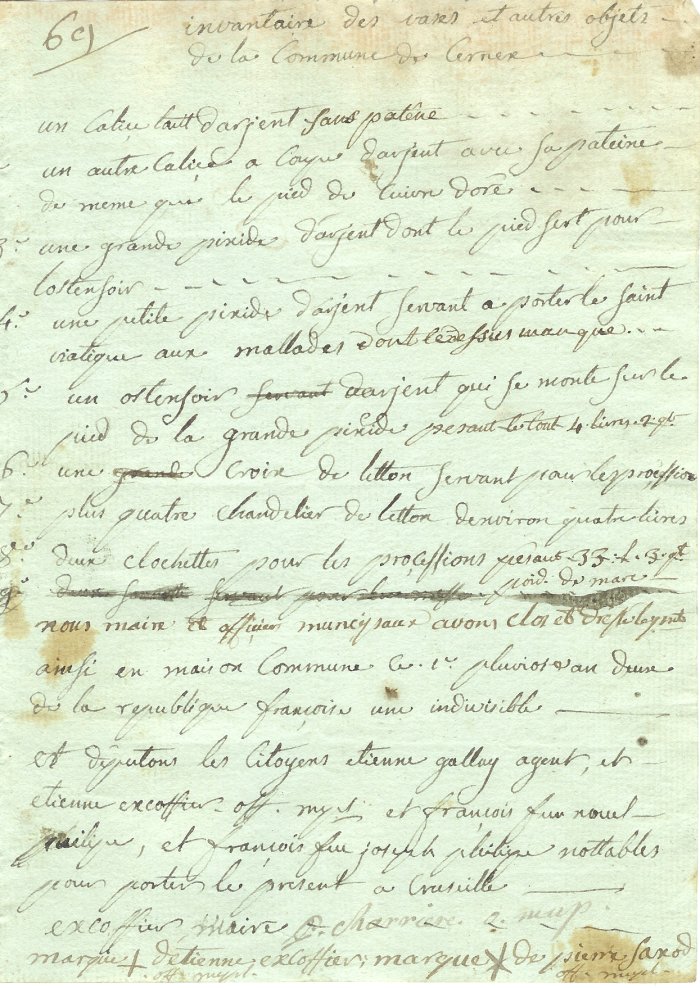 69
invantaire des vases et autres objets
de la Commune de Cernex
un Calice tout d'argent sans patêne
un autre Calice a Coupe d'argent avec sa pateine
de meme que le pied de Cuivre doré
3.° une grande pixide d'argent dont le pied sert pour
lostensoir
4.° une petite pixide d'argent servant a porter le saint
viatique aux mallades dont le dessus manque
5.° un ostensoir servant d'argent qui se monte sur le
pied de la grande pixide pesant le tout 4 livres 2 qt
6.° une grande Croix de letton servant pour les proçession
7.° plus quatre Chandelier de letton denviron quatre livres
8.° deux Clochettes pour les proçessions pesant 33 L 3 qt
9.° deux servant pour poid de marc
nous maire et officiers municipaux avons Clos et dressé le pnt
ainsi en maison Commune Ce 1.er pluviose an deux
de la republique françoise une indivisible
et députons les Citoyens etienne gallay agent, et
etienne excoffier off. mpl et françois feu nouel
philipe, et françois feu joseph philipe nottables
pour porter le present a Cruseille
excoffier maire C. charriere o. mup.
marque + d'etienne excoffier, marque + de pierre saxod
off. mupl. off. mupl.